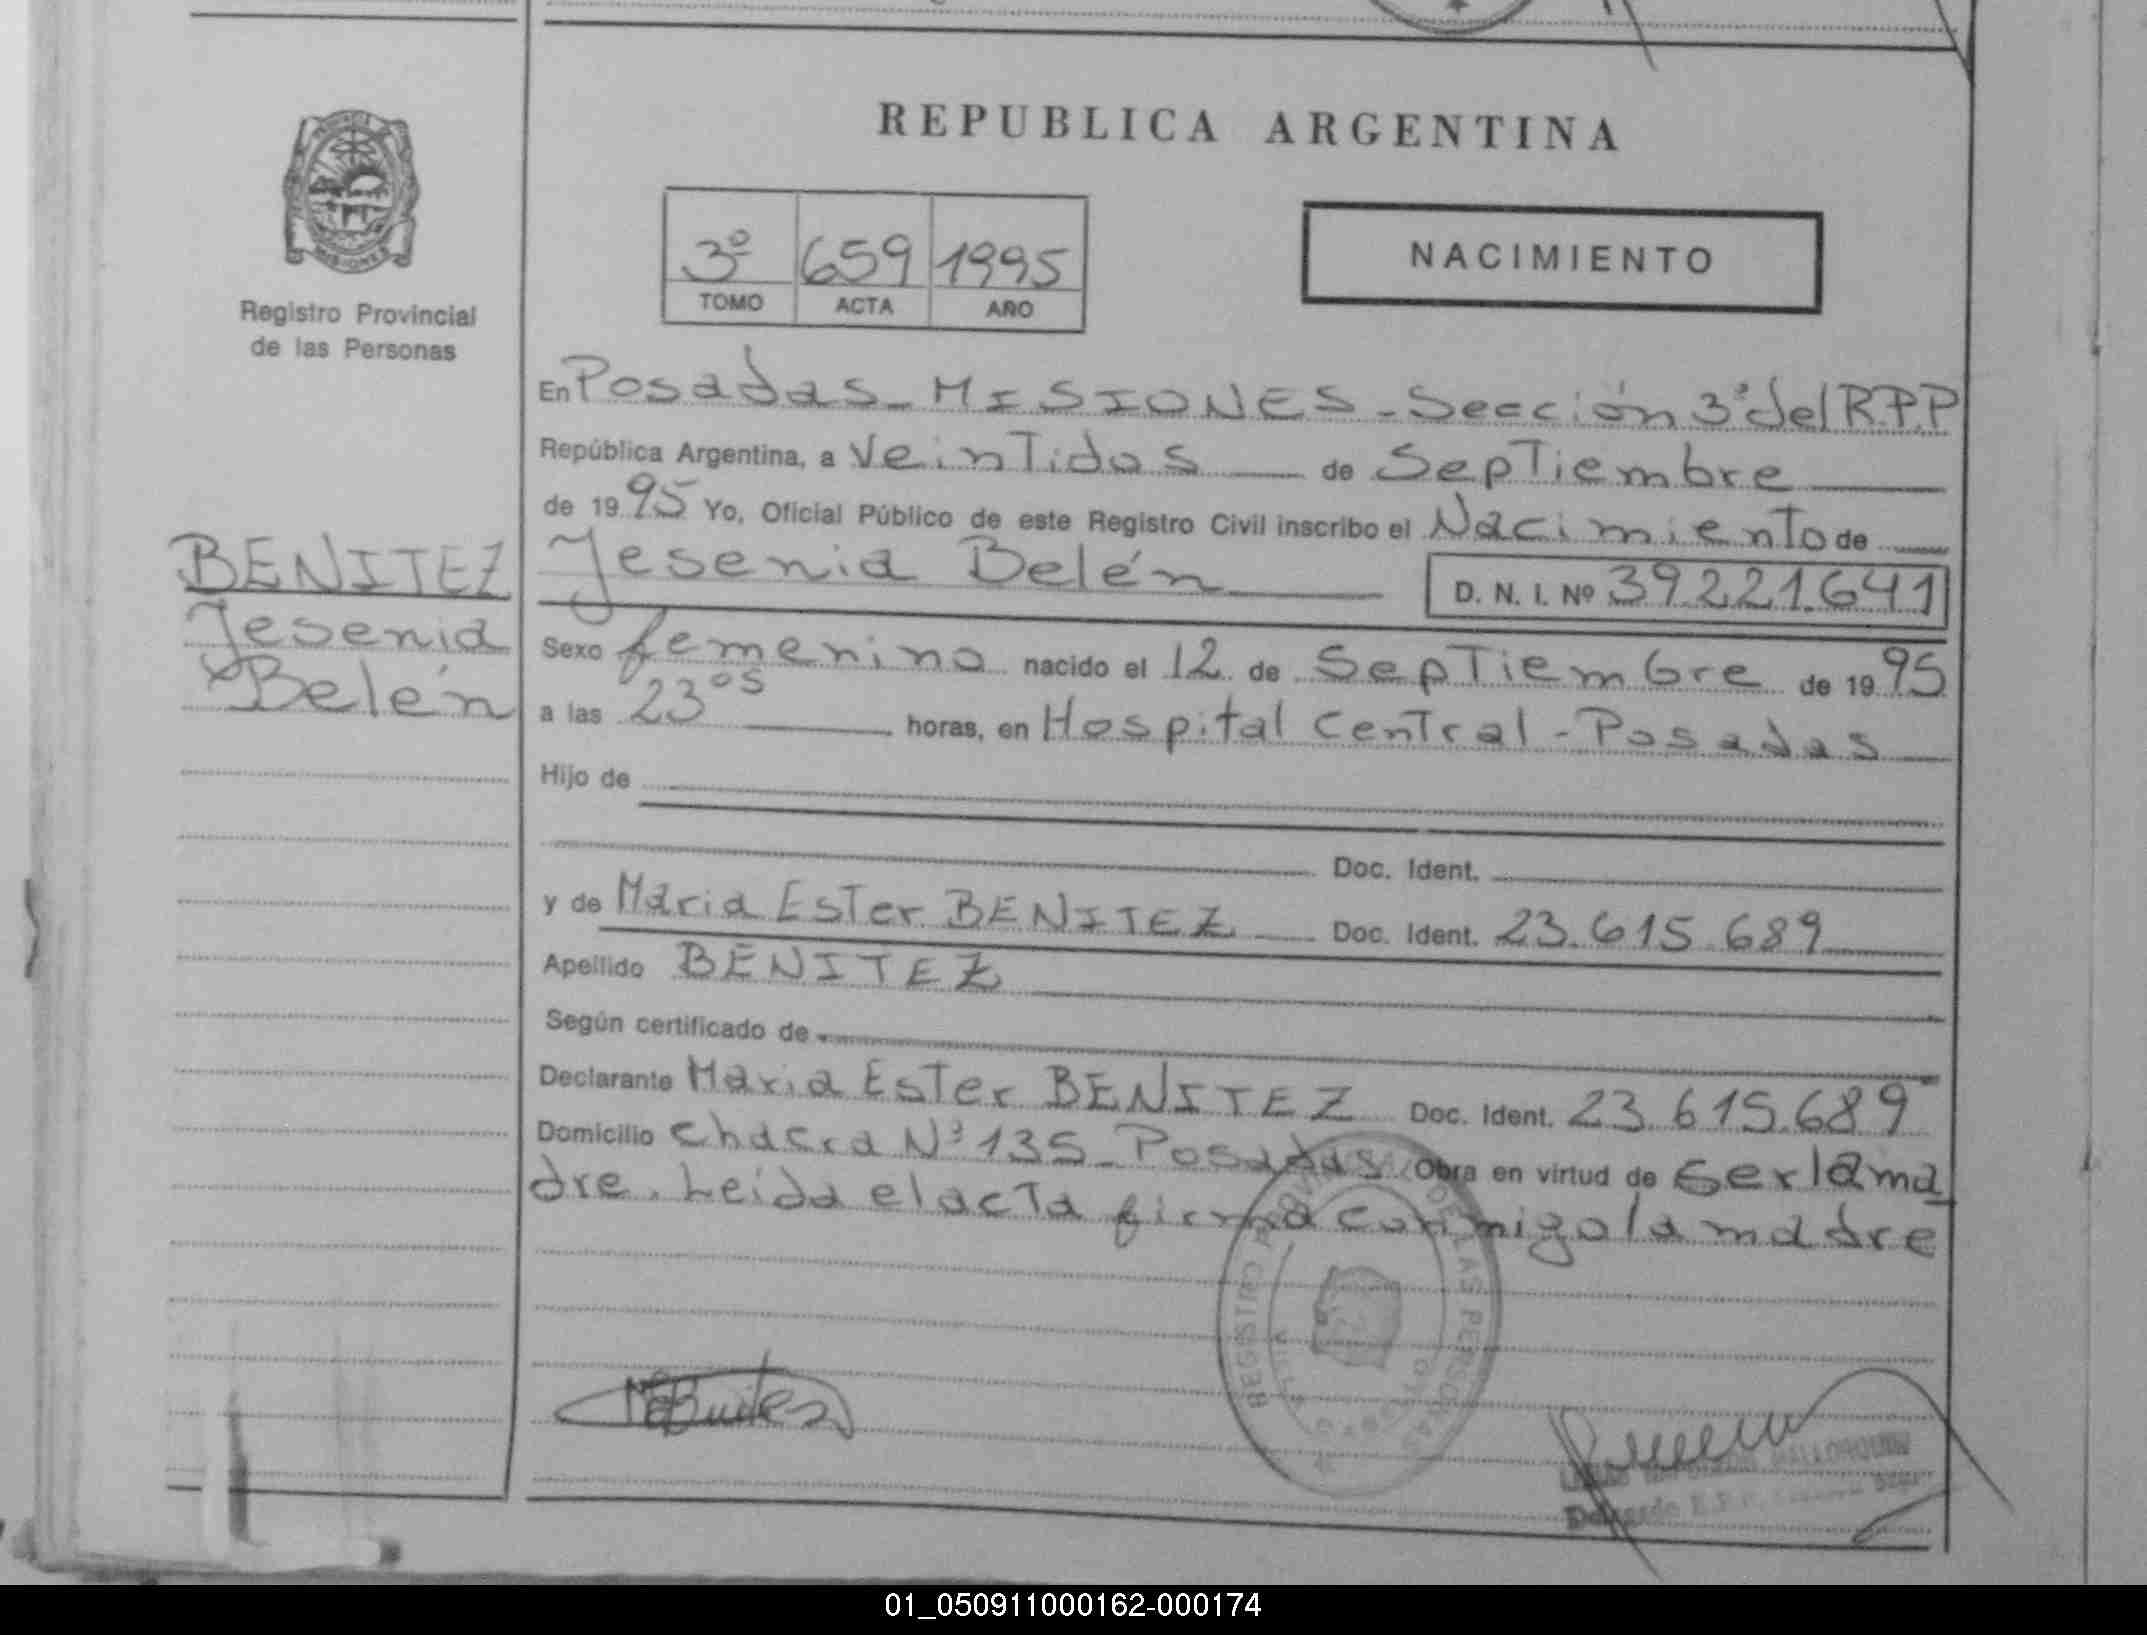 REPUBLICA ARGENTINA
3º 659 1995
TOMO ACTA AÑO
NACIMIENTO
MISIONES
Registro Provincial
de las Personas
BENITEZ
Jesenia
Belén
En Posadas - MISIONES - Sección 3ª del R.P.P
República Argentina, a Veintidos de Septiembre
de 1995 Yo, Oficial Público de este Registro Civil inscribo el Nacimiento de
Jesenia Belén D. N. I. Nº 39.221.641
Sexo femenino nacido el 12 de Septiembre de 1995
a las 23⁰⁵ horas, en Hospital Central - Posadas
Hijo de
Doc. Ident.
y de Maria Ester BENITEZ Doc. Ident. 23.615.689
Apellido BENITEZ
Según certificado de
Declarante Maria Ester BENITEZ Doc. Ident. 23.615.689
Domicilio Chacra Nº 135 - Posadas Obra en virtud de ser la ma
dre. Leida el acta firma conmigo la madre
REGISTRO DE LAS PERSONAS
MALLORQUIN
01_050911000162-000174